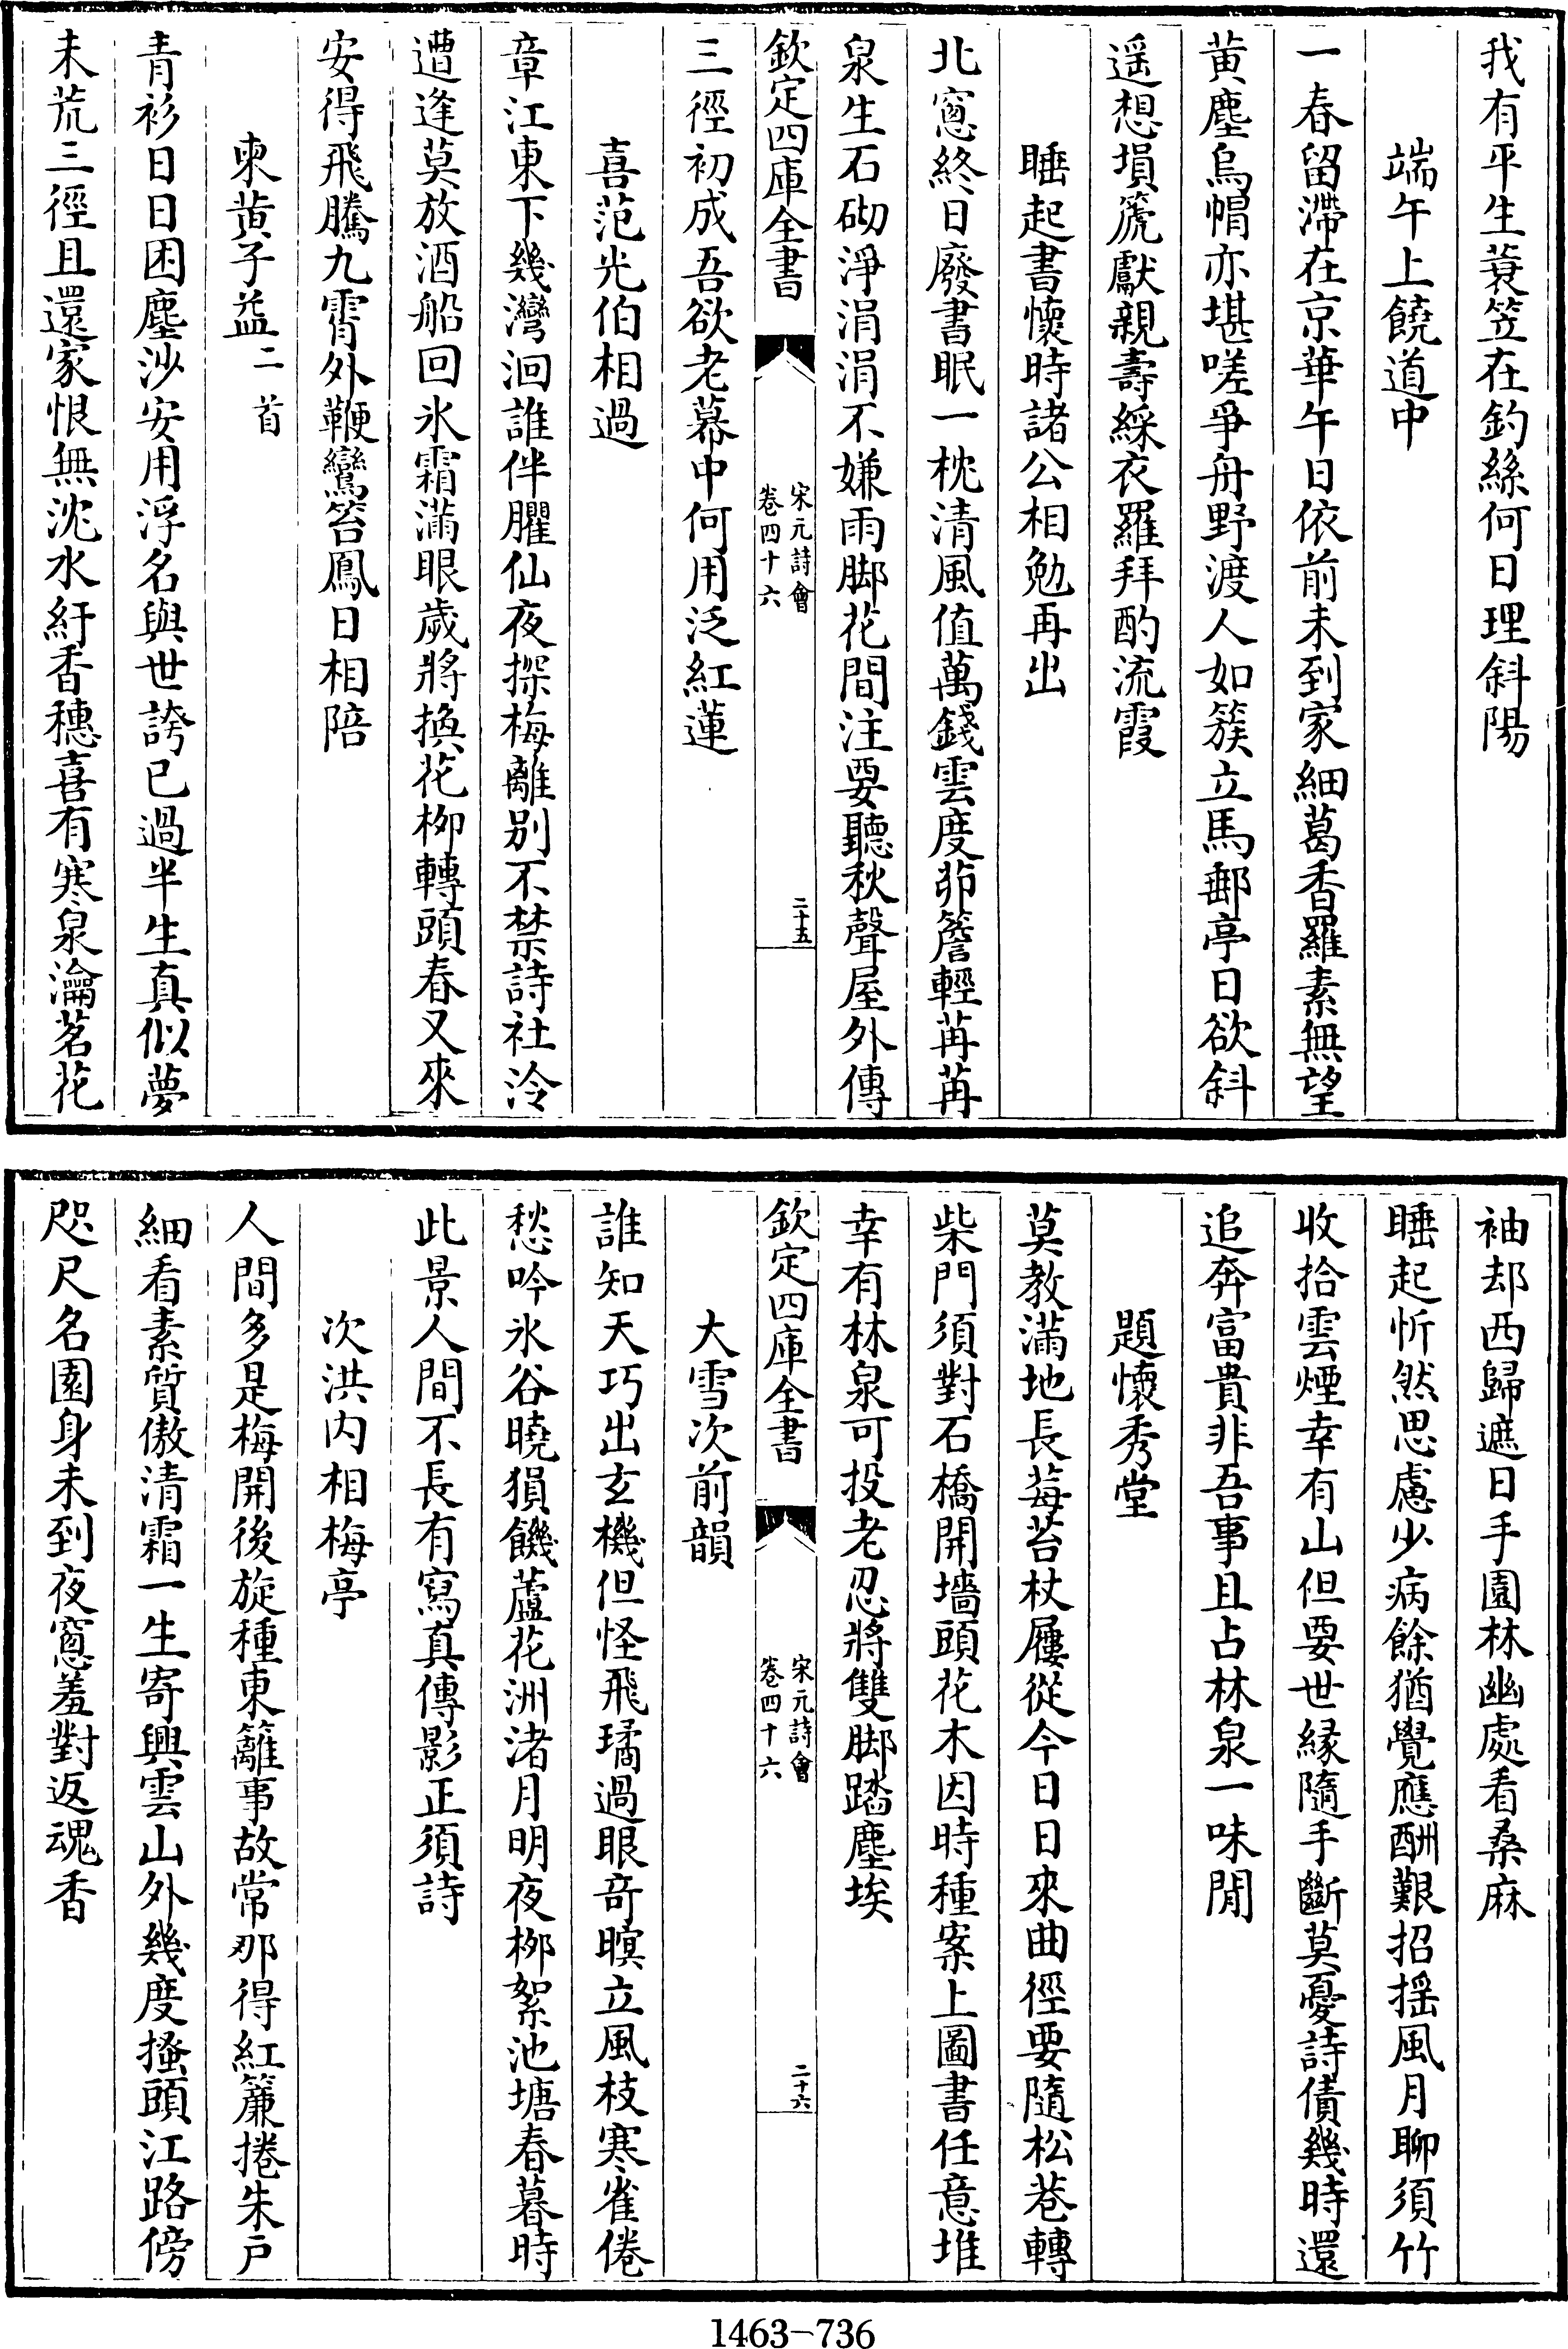 我有平生蓑笠在釣絲何日理斜陽
端午上饒道中
一春留滯在京華午日依前未到家細葛香羅素無望
黄塵烏帽亦堪嗟爭舟野渡人如簇立馬郵亭日欲斜
遥想塤箎獻親壽綵衣羅拜酌流霞
睡起書懷時諸公相勉再出
北窓終日廢書眠一枕清風值萬錢雲度茆簷輕苒苒
泉生石砌淨涓涓不嫌雨脚花間注要聽秋聲屋外傳
欽定四庫全書
宋元詩會
卷四十六
二十五
三徑初成吾欲老幕中何用泛紅蓮
喜范光伯相過
章江東下幾灣洄誰伴臞仙夜探梅離别不禁詩社冷
遭逢莫放酒船回氷霜滿眼歲將換花柳轉頭春又來
安得飛騰九霄外鞭鸞笞鳳日相陪
柬黄子益二首
青衫日日困塵沙安用浮名與世誇已過半生真似夢
未荒三徑且還家恨無沈水紆香穗喜有寒泉瀹茗花
袖却西歸遮日手園林幽處看桑麻
睡起忻然思慮少病餘猶覺應酬艱招揺風月聊須竹
收拾雲煙幸有山但要世縁隨手斷莫憂詩債幾時還
追奔富貴非吾事且占林泉一味閒
題懷秀堂
莫教滿地長莓苔杖屨從今日日來曲徑要隨松巷轉
柴門須對石橋開墻頭花木因時種案上圖書任意堆
幸有林泉可投老忍將雙脚踏塵埃
欽定四庫全書
宋元詩會
卷四十六
二十六
大雪次前韻
誰知天巧出玄機但怪飛璚過眼奇暝立風枝寒雀倦
愁吟氷谷曉猨饑蘆花洲渚月明夜柳絮池塘春暮時
此景人間不長有寫真傳影正須詩
次洪内相梅亭
人間多是梅開後旋種東籬事故常那得紅簾捲朱户
細看素質傲清霜一生寄興雲山外幾度搔頭江路傍
咫尺名園身未到夜窓羞對返魂香
1463-736